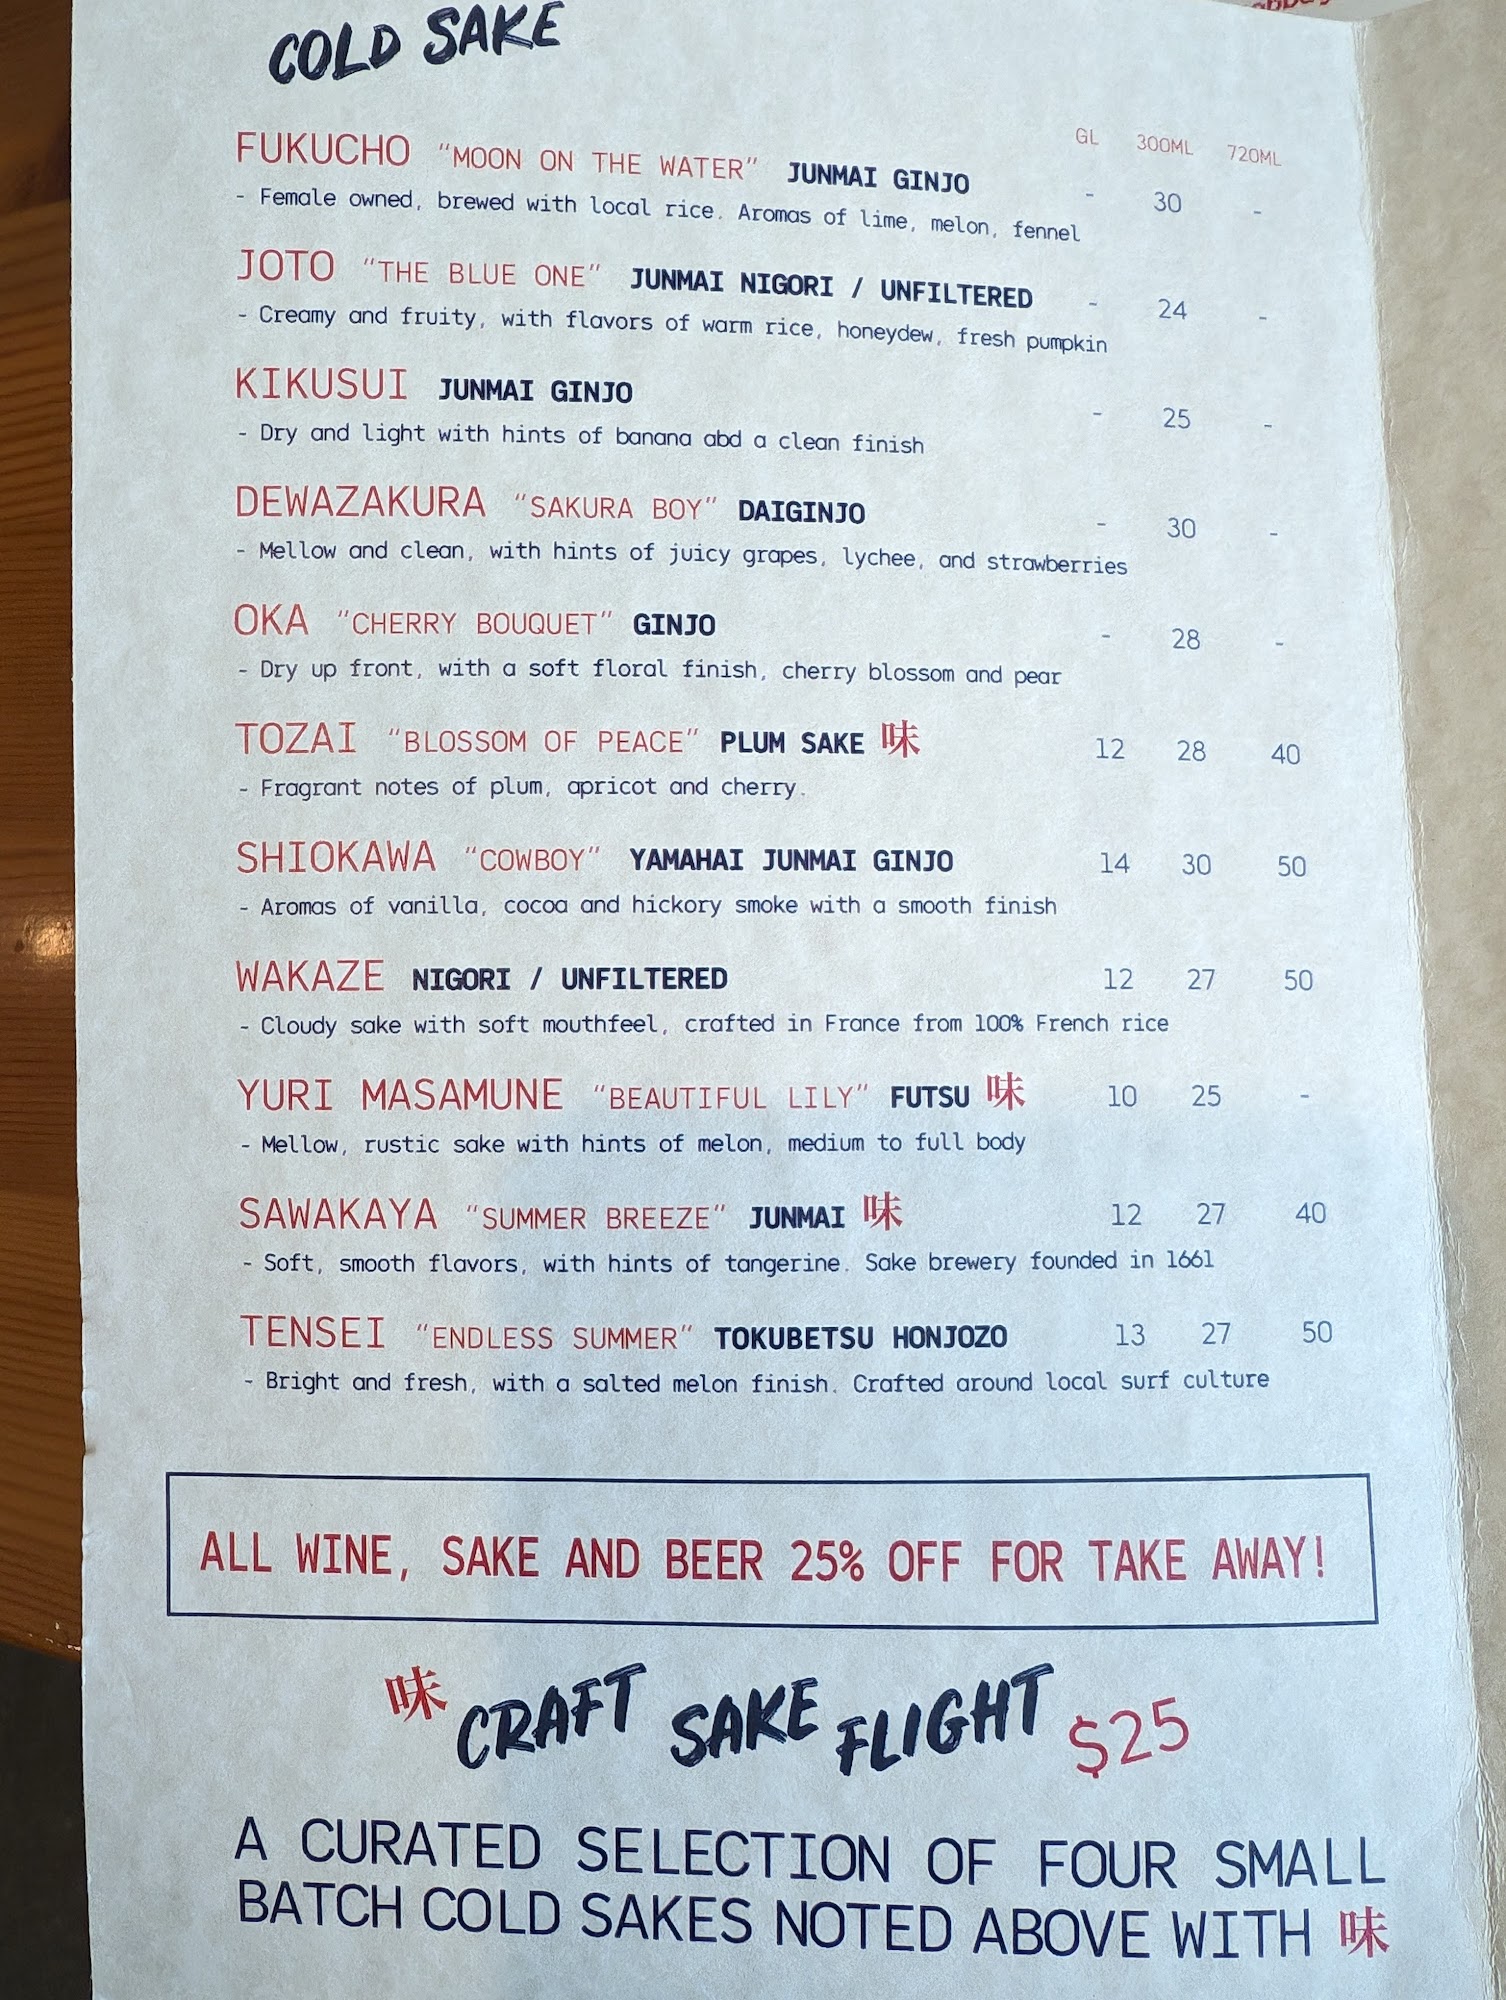 COLD SAKE
GL 300ML 720ML
FUKUCHO "MOON ON THE WATER" JUNMAI GINJO - 30 -
- Female owned, brewed with local rice. Aromas of lime, melon, fennel
JOTO "THE BLUE ONE" JUNMAI NIGORI / UNFILTERED - 24 -
- Creamy and fruity, with flavors of warm rice, honeydew, fresh pumpkin
KIKUSUI JUNMAI GINJO - 25 -
- Dry and light with hints of banana abd a clean finish
DEWAZAKURA "SAKURA BOY" DAIGINJO - 30 -
- Mellow and clean, with hints of juicy grapes, lychee, and strawberries
OKA "CHERRY BOUQUET" GINJO - 28 -
- Dry up front, with a soft floral finish, cherry blossom and pear
TOZAI "BLOSSOM OF PEACE" PLUM SAKE 味 12 28 40
- Fragrant notes of plum, apricot and cherry.
SHIOKAWA "COWBOY" YAMAHAI JUNMAI GINJO 14 30 50
- Aromas of vanilla, cocoa and hickory smoke with a smooth finish
WAKAZE NIGORI / UNFILTERED 12 27 50
- Cloudy sake with soft mouthfeel, crafted in France from 100% French rice
YURI MASAMUNE "BEAUTIFUL LILY" FUTSU 味 10 25 -
- Mellow, rustic sake with hints of melon, medium to full body
SAWAKAYA "SUMMER BREEZE" JUNMAI 味 12 27 40
- Soft, smooth flavors, with hints of tangerine. Sake brewery founded in 1661
TENSEI "ENDLESS SUMMER" TOKUBETSU HONJOZO 13 27 50
- Bright and fresh, with a salted melon finish. Crafted around local surf culture
ALL WINE, SAKE AND BEER 25% OFF FOR TAKE AWAY!
味 CRAFT SAKE FLIGHT $25
A CURATED SELECTION OF FOUR SMALL
BATCH COLD SAKES NOTED ABOVE WITH 味